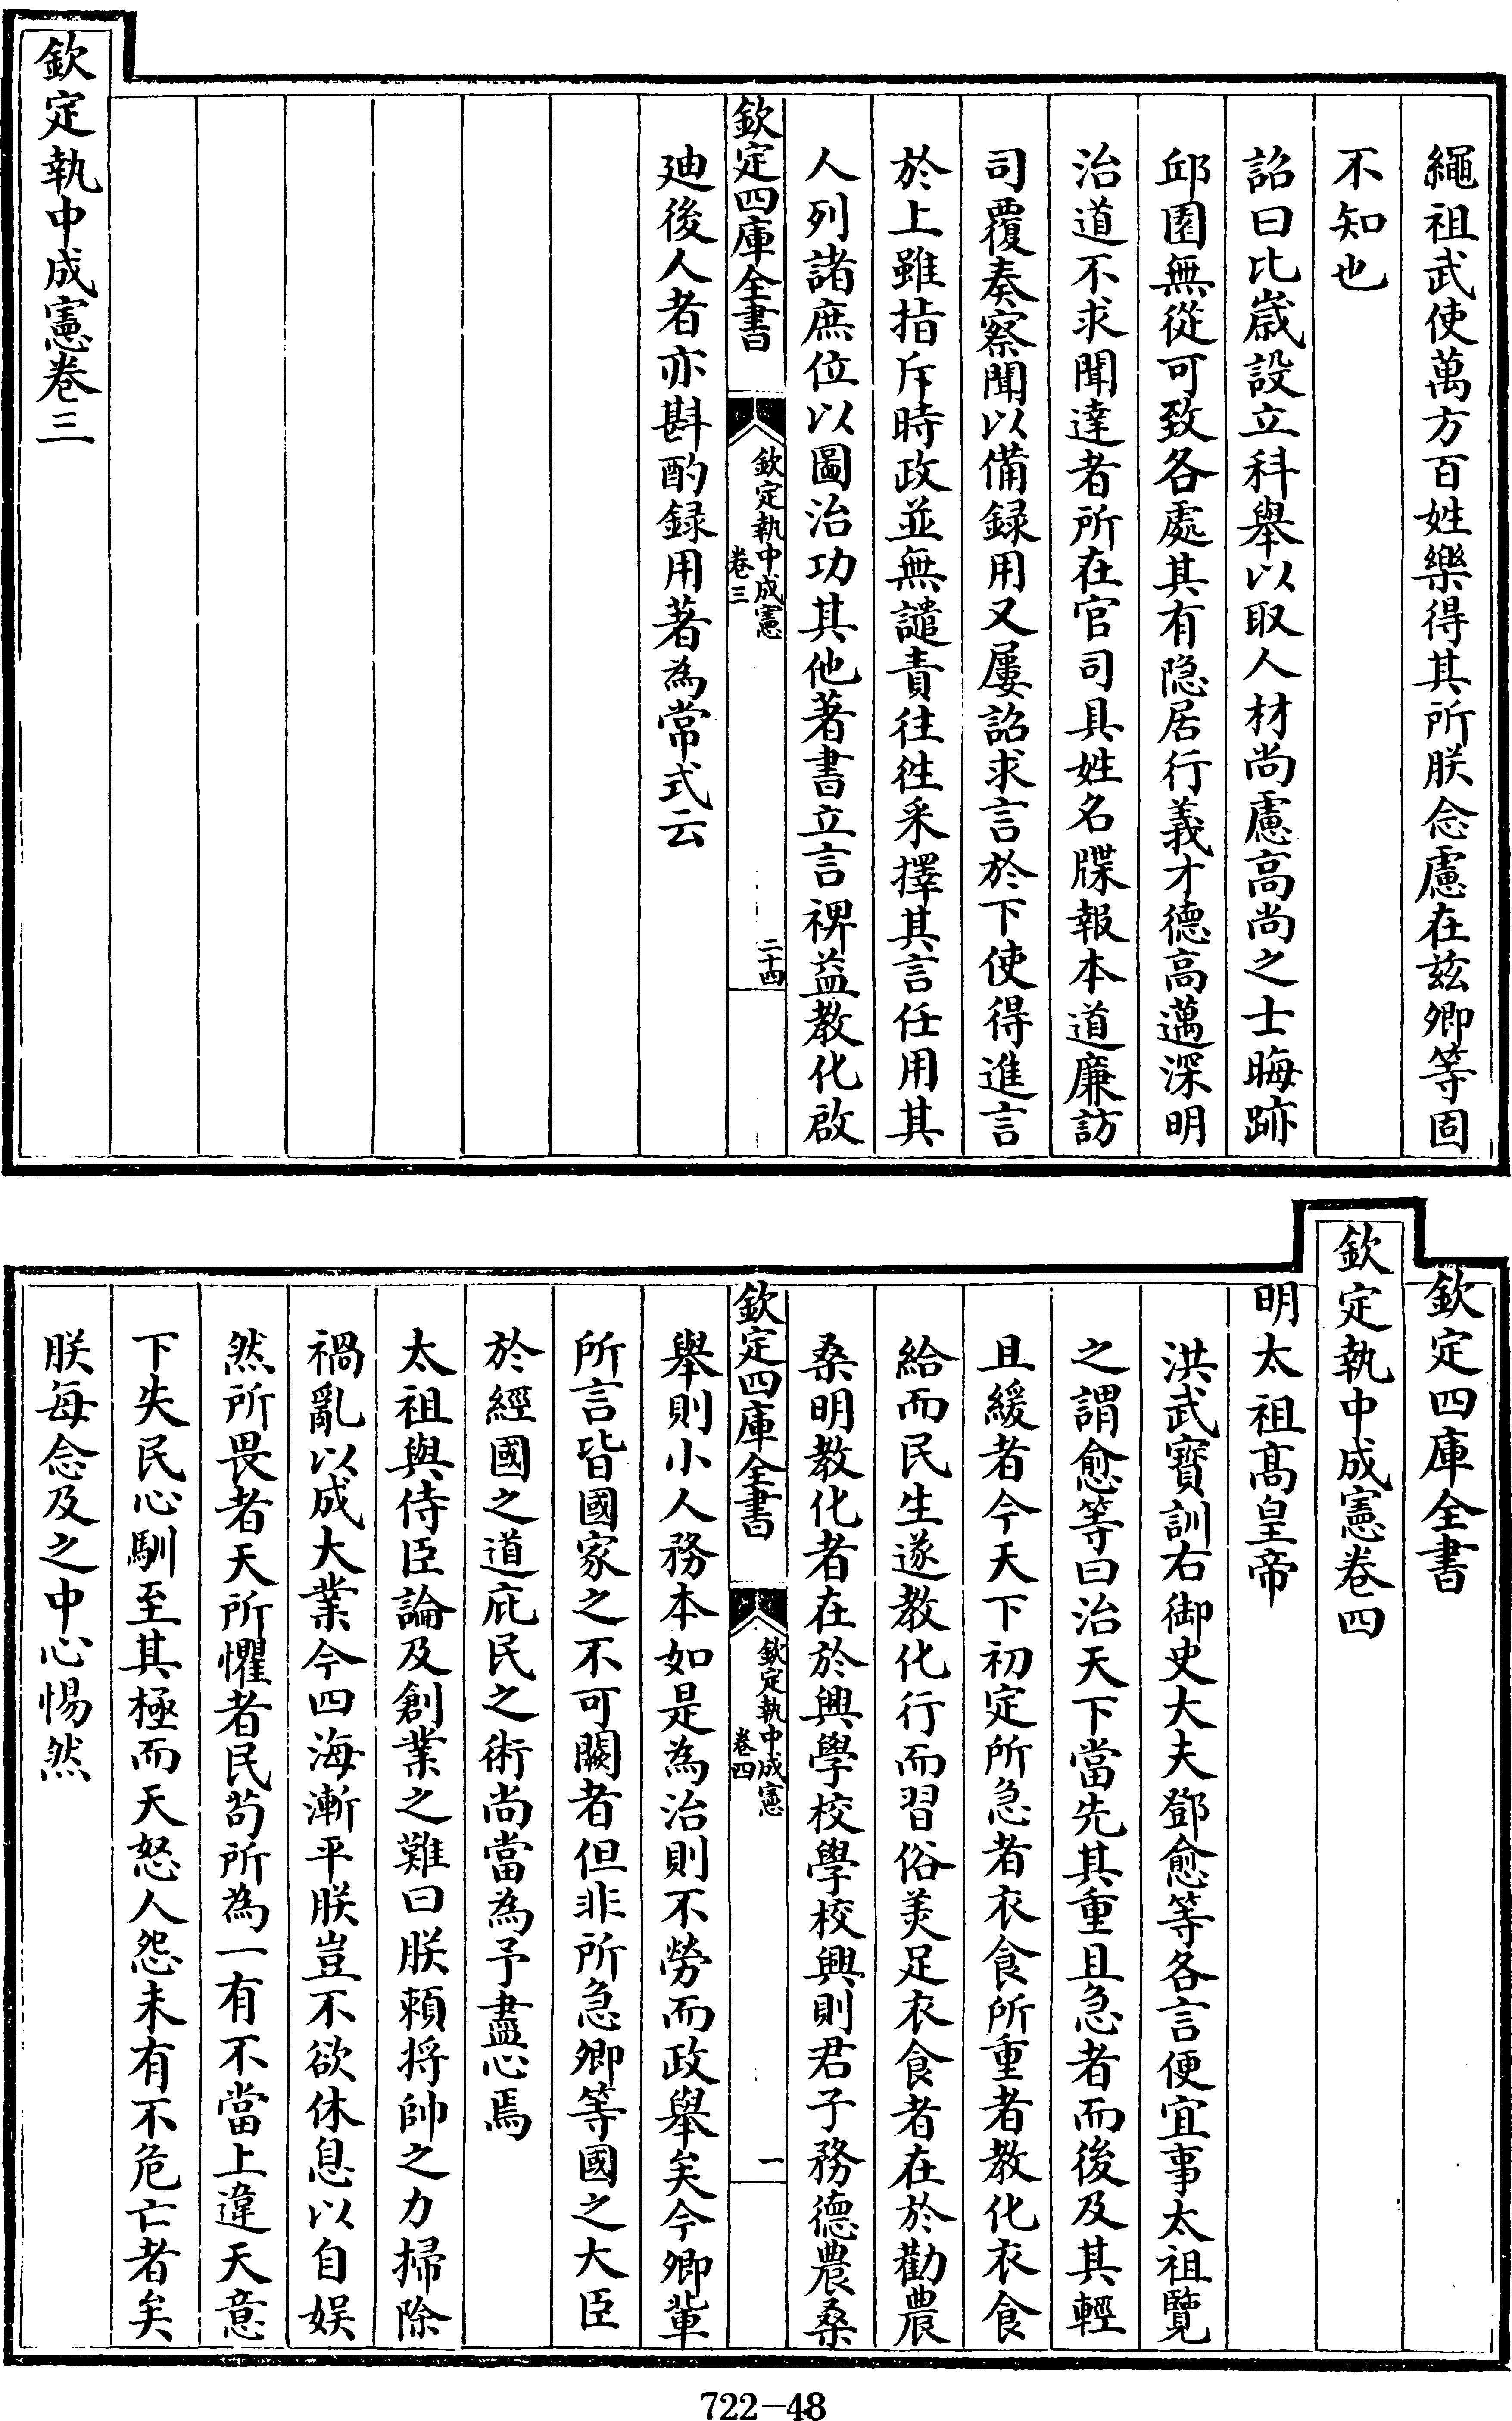 繩祖武使萬方百姓樂得其所朕念慮在兹卿等固
不知也
詔曰比歲設立科舉以取人材尚慮高尚之士晦跡
邱園無從可致各處其有隐居行義才德高邁深明
治道不求聞達者所在官司具姓名牒報本道廉訪
司覆奏察聞以備録用又屢詔求言於下使得進言
於上雖指斥時政並無譴責往徃采擇其言任用其
人列諸庶位以圖治功其他著書立言禆益教化啟
欽定四庫全書
欽定執中成憲
卷三
二十四
廸後人者亦斟酌録用著為常式云
欽定執中成憲卷三
欽定四庫全書
欽定執中成憲卷四
明太祖髙皇帝
洪武寳訓右御史大夫鄧愈等各言便宜事太祖覽
之謂愈等曰治天下當先其重且急者而後及其輕
且緩者今天下初定所急者衣食所重者教化衣食
給而民生遂教化行而習俗美足衣食者在於勸農
桑明教化者在於興學校學校興則君子務德農桑
舉則小人務本如是為治則不勞而政舉矣今卿軰
欽定四庫全書
欽定執中成憲
卷四
一
所言皆國家之不可闕者但非所急卿等國之大臣
於經國之道庇民之術尚當為予盡心焉
太祖與侍臣論及創業之難曰朕頼将帥之力掃除
禍亂以成大業今四海漸平朕豈不欲休息以自娱
然所畏者天所懼者民苟所為一有不當上違天意
下失民心馴至其極而天怒人怨未有不危亡者矣
朕每念及之中心惕然
722-48